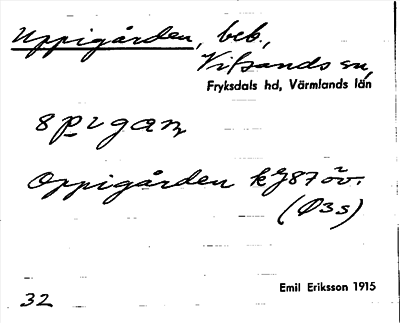 Uppigården, beb.,
Vitsands sn,
Fryksdals hd, Värmlands län
Oppigården
(Ø3s)
32
Emil Eriksson 1915